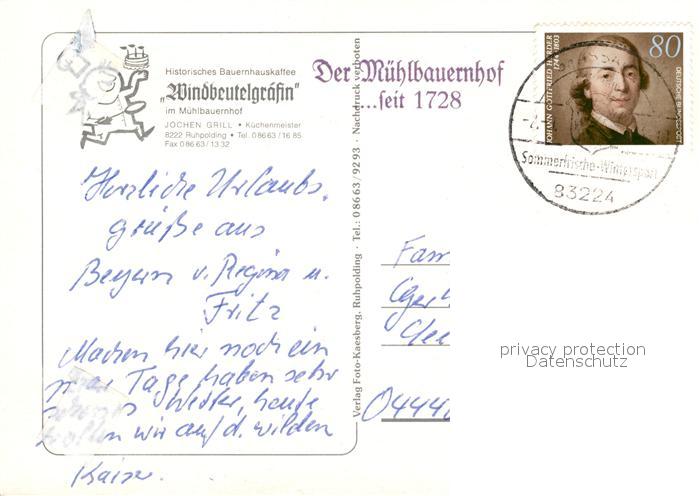 Historisches Bauernhauskaffee
„Windbeutelgräfin“
im Mühlbauernhof
JOCHEN GRILL • Küchenmeister
8222 Ruhpolding • Tel. 0 86 63 / 16 85
Fax 0 86 63 / 13 32
Der Mühlbauernhof
...seit 1728
80
JOHANN GOTTFRIED HERDER
1744-1803
DEUTSCHE BUNDESPOST
Sommerfrische-Wintersport
83224
Herzliche Urlaubs-
grüße aus
Bayern v. Regina u.
Fritz
Machen hier noch ein
paar Tage haben sehr
Wetter, heute
wir auf d. wilden
Kaiser.
Verlag Foto-Kaesberg, Ruhpolding · Tel.: 0 86 63 / 92 93 · Nachdruck verboten
Fam
0444
privacy protection
Datenschutz